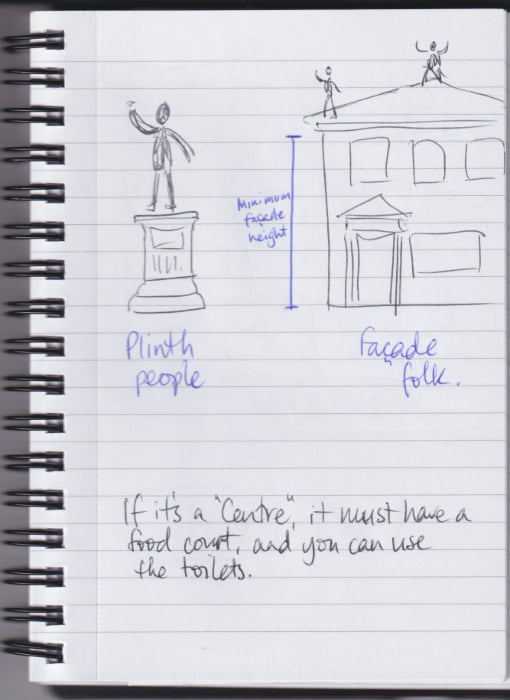 Minimum
façade
height
Plinth
people
façade
folk.
If it's a "Centre", it must have a
food court, and you can use
the toilets.